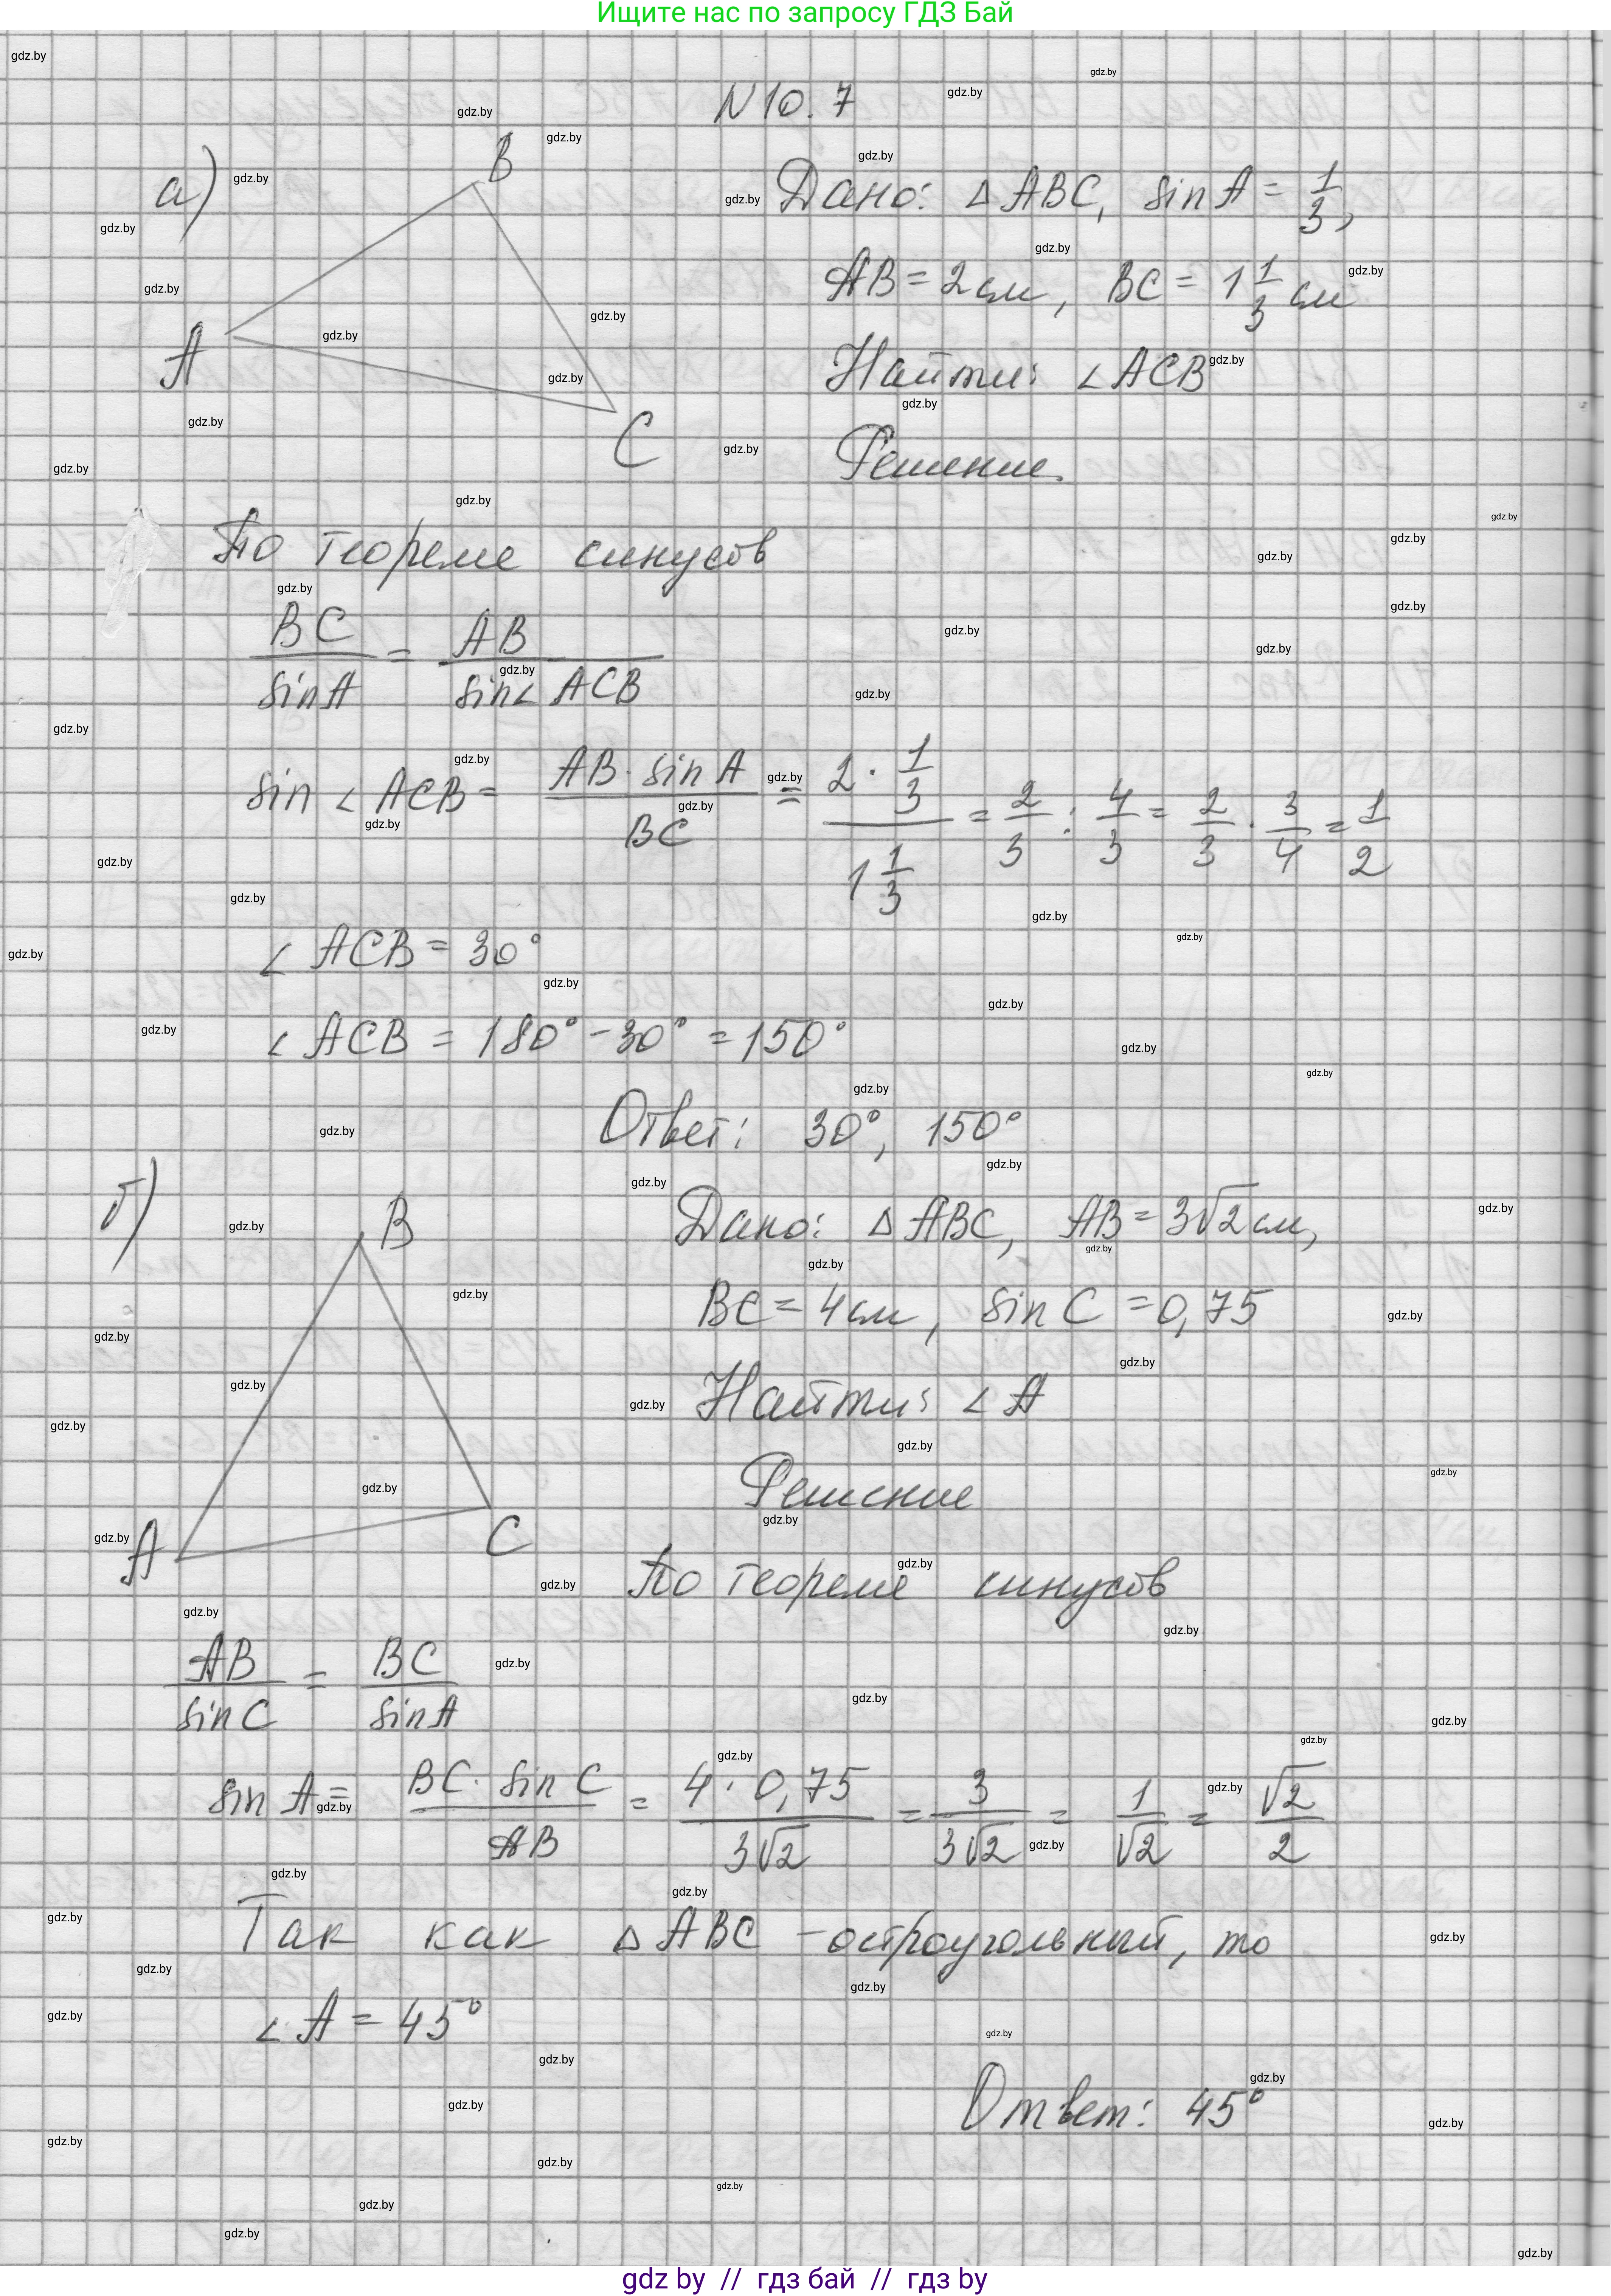 Ищите нас по запросу ГДЗ Бай
N 10. 7
а)
B
A
C
Дано: △ ABC, sin A = 1/3,
AB = 2 см, BC = 1 1/3 см
Найти: ∠ACB
Решение.
По теореме синусов
BC/sin A = AB/sin∠ACB
sin ∠ACB = AB · sin A/BC = 2 · 1/3 / 1 1/3 = 2/3 : 4/3 = 2/3 · 3/4 = 1/2
∠ ACB = 30°
∠ ACB = 180° - 30° = 150°
Ответ: 30°, 150°
б)
B
A
C
Дано: △ ABC, AB = 3√2 см,
BC = 4 см, sin C = 0,75
Найти: ∠ A
Решение
По теореме синусов
AB/sin C = BC/sin A
sin A = BC · sin C/AB = 4 · 0,75/3√2 = 3/3√2 = 1/√2 = √2/2
Так как △ ABC - остроугольный, то
∠ A = 45°
Ответ: 45°
gdz by // гдз бай // гдз by